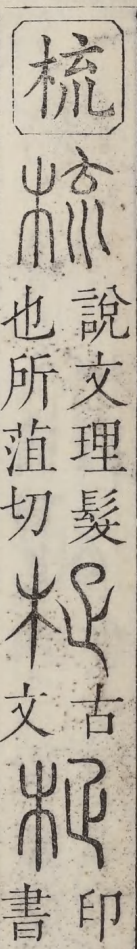 梳
說文理髮
也所葅切
古
文
印
書